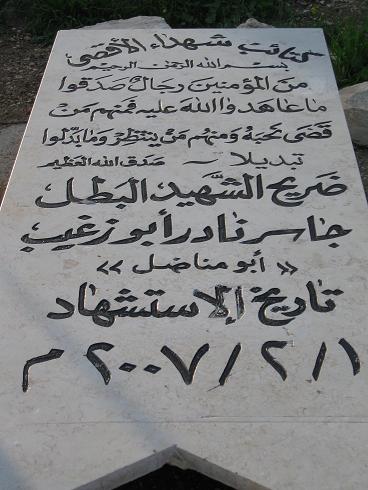 كتائب شهداء الأقصى
بسم الله الرحمن الرحيم
من المؤمنين رجال صدقوا
ما عاهدوا الله عليه فمنهم من
قضى نحبه ومنهم من ينتظر وما بدلوا
تبديلا - صدق الله العظيم
ضريح الشهيد البطل
جاسر نادر أبو زغيب
« أبو مناضل »
تاريخ الإستشهاد
٢٠٠٧/٢/١ م